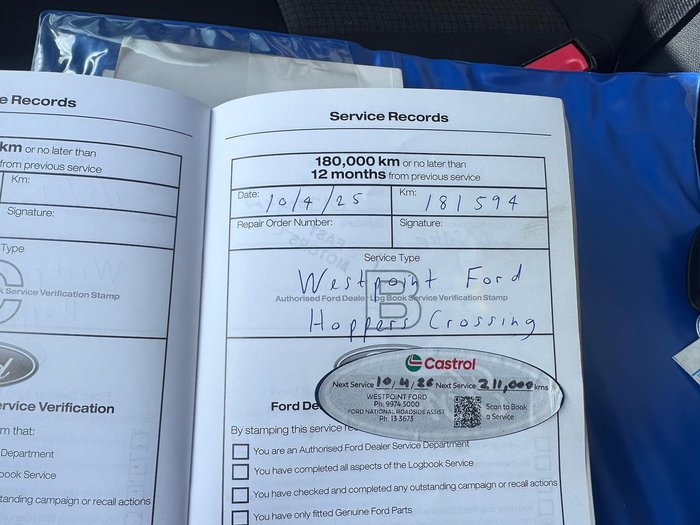 e Records
km or no later than
from previous service
Km:
Signature:
Type
C
k Service Verification Stamp
Ford
ervice Verification
m that:
Department
book Service
tanding campaign or recall actions
Service Records
180,000 km or no later than
12 months from previous service
Date: 10/4/25 Km: 181594
Repair Order Number: Signature:
Service Type
B
Westpoint Ford
Authorised Ford Dealer Log Book Service Verification Stamp
Hoppers Crossing
Castrol
Next Service 10/4/26 Next Service 211,000 kms
WESTPOINT FORD
Ph: 9974 5000
FORD NATIONAL ROADSIDE ASSIST
Ph: 13 3673
Scan to Book
a Service
Ford De
By stamping this service re
You are an Authorised Ford Dealer Service Department
You have completed all aspects of the Logbook Service
You have checked and completed any outstanding campaign or recall actions
You have only fitted Genuine Ford Parts